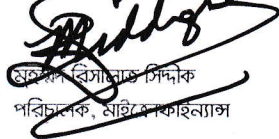 রিসালাত সিদ্দীক
পরিচালক, মাইক্রোফাইন্যান্স